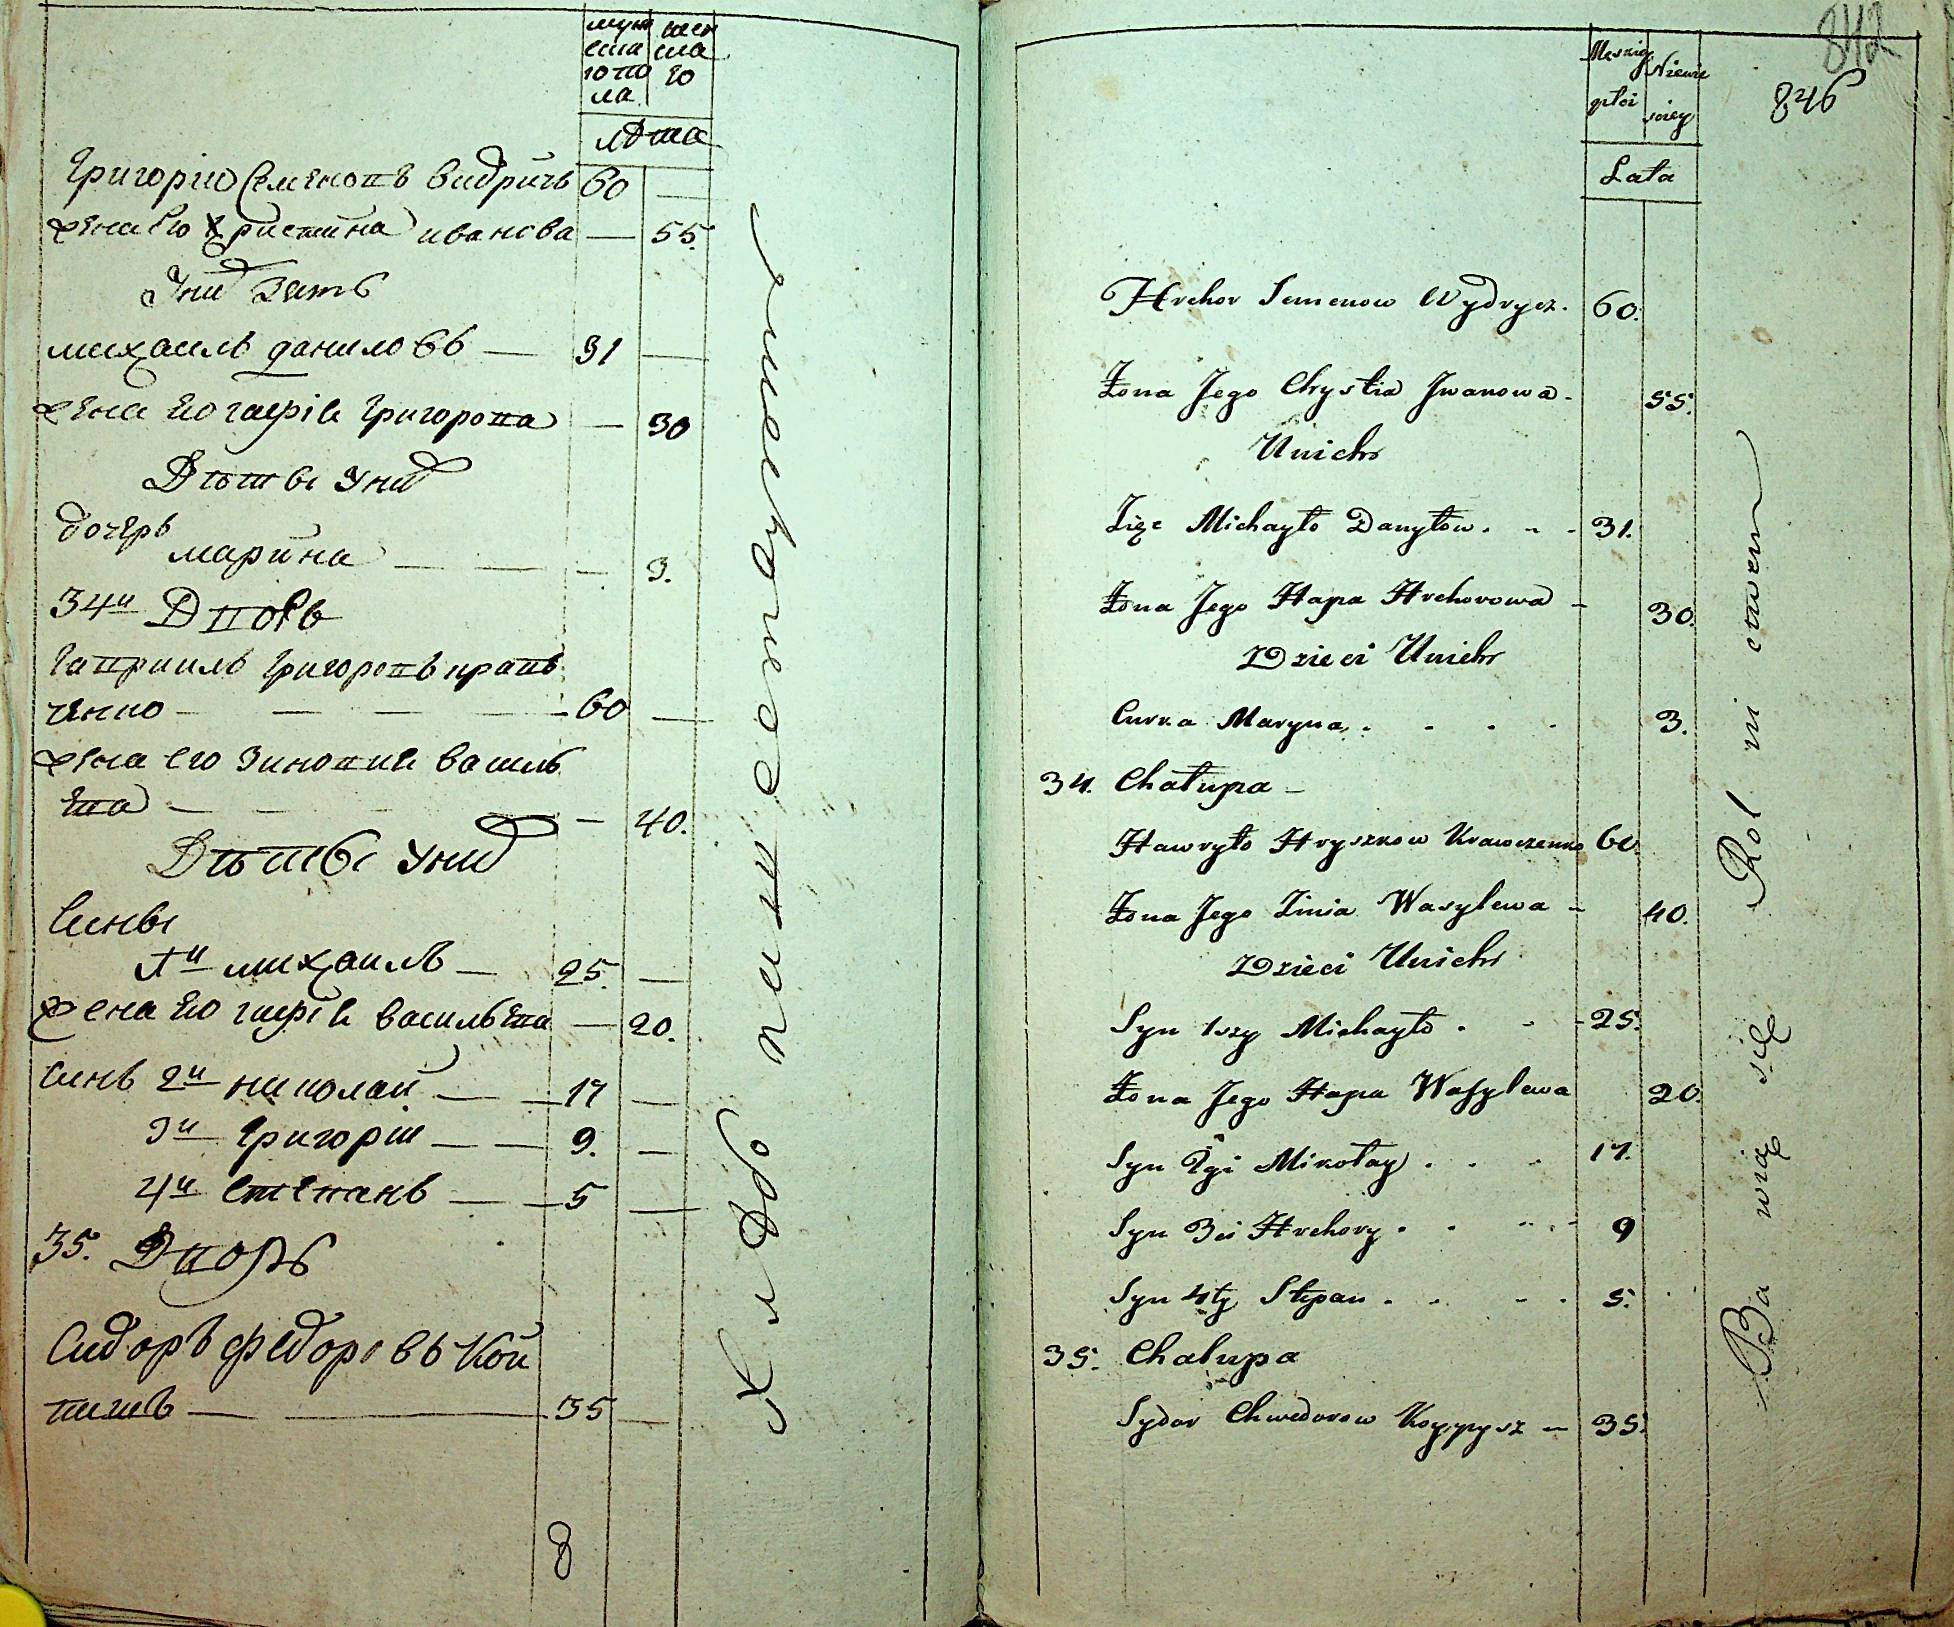 муж жен
ска ска
го по го
ла
лѣта
Григорио Семеновъ видричь 60
жена Его Христина иванова 55.
Уних зять
михаилъ даниловъ 31
жена Его гапіа Григорова 30
Дѣтеы Уних
дочерь
марина 3.
34й Дворъ
Гавриилъ Григоровъ кравъ
ченко 60
жена его Зиновия василь
Ева 40.
Дѣтеы Уних
Сины
1й михаилъ 25.
жена Его гапіа васильЕва 20.
Синъ 2й николай 17
3й Григорій 9.
4й степанъ 5
35. Дворъ
Сидоръ федоровъ Кой
пишъ 35
8
Хлѣбопашеством
842
846
Męzkiej Niewie
płci sciey
Lata
Hrehor Semenow Wydrycz. 60.
Żona Jego Chystia Jwanowa 55.
Unich
Zięc Michayło Danyłow. 31.
Żona Jego Hapa Hrehorowa 30.
Dzieci Unich
Curka Maryna. 3.
34. Chałupa
Hawryło Hryszkow Krawczenko 60.
Żona Jego Zinia Wasylewa 40.
Dzieci Unich
Syn 1szy Michayło. 25.
Żona Jego Hapa Wasylewa 20.
Syn 2gi Mikołay. 17.
Syn 3ci Hrehory. 9
Syn 4ty Stepan. 5.
35. Chałupa
Sydor Chwedorow Koypysz 35.
Ba wią się Rol ni ctwem